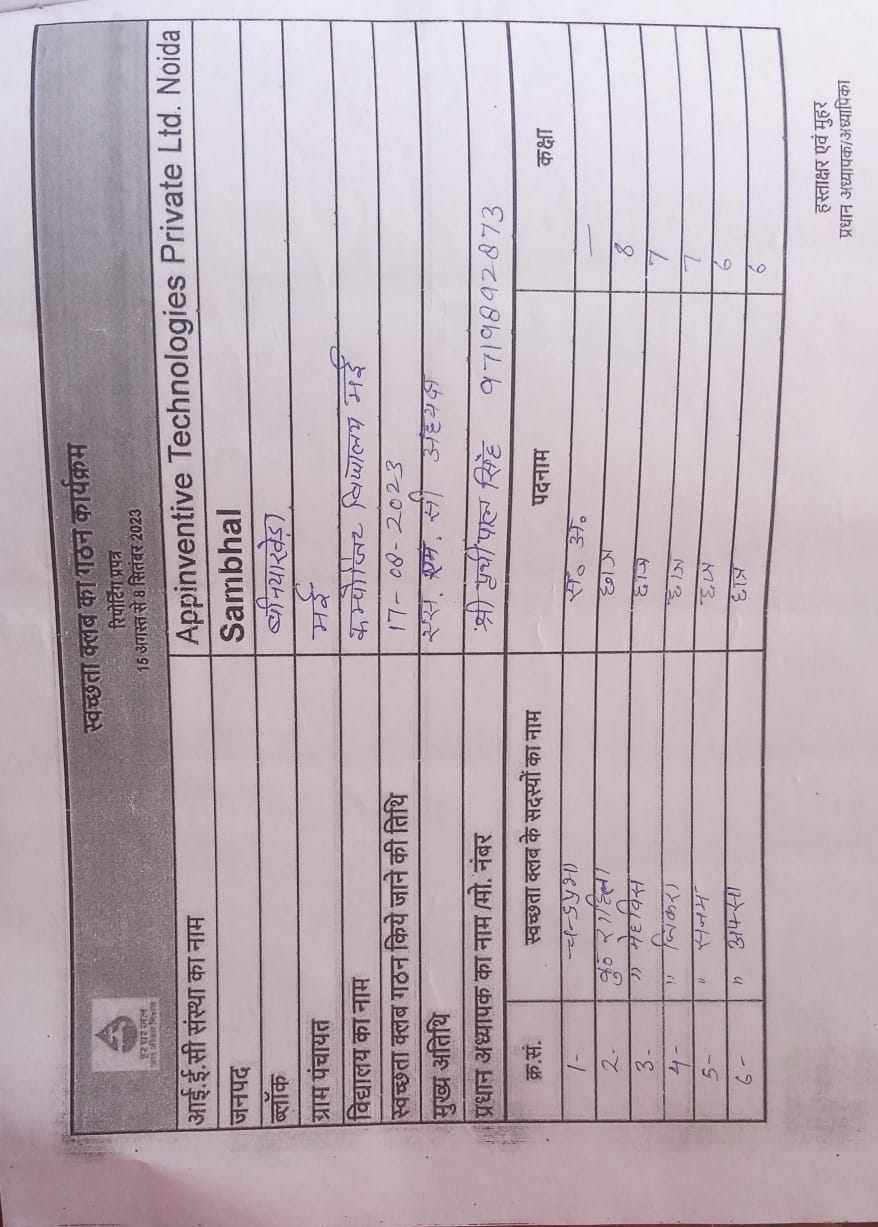 हर घर जल
जल जीवन मिशन
स्वच्छता क्लब का गठन कार्यक्रम
रिपोर्टिंग प्रपत्र
15 अगस्त से 8 सितंबर 2023
आई.ई.सी संस्था का नाम Appinventive Technologies Private Ltd. Noida
जनपद Sambhal
ब्लॉक बनियाखेड़ा
ग्राम पंचायत मई
विद्यालय का नाम कम्पोजिट विद्यालय मई
स्वच्छता क्लब गठन किये जाने की तिथि 17-08-2023
मुख्य अतिथि एस. एम. सी अध्यक्ष
प्रधान अध्यापक का नाम /मो. नंबर श्री पृथ्वीपाल सिंह 9719892873
क्र.सं. स्वच्छता क्लब के सदस्यों का नाम पदनाम कक्षा
1- चन्द्रप्रभा स० अ० —
2- कु० राहिला छात्र 8
3- " मेहविस छात्र 7
4- " छात्र 7
5- " सनम छात्र 6
6- " अफ्सा छात्र 6
हस्ताक्षर एवं मुहर
प्रधान अध्यापक/अध्यापिका